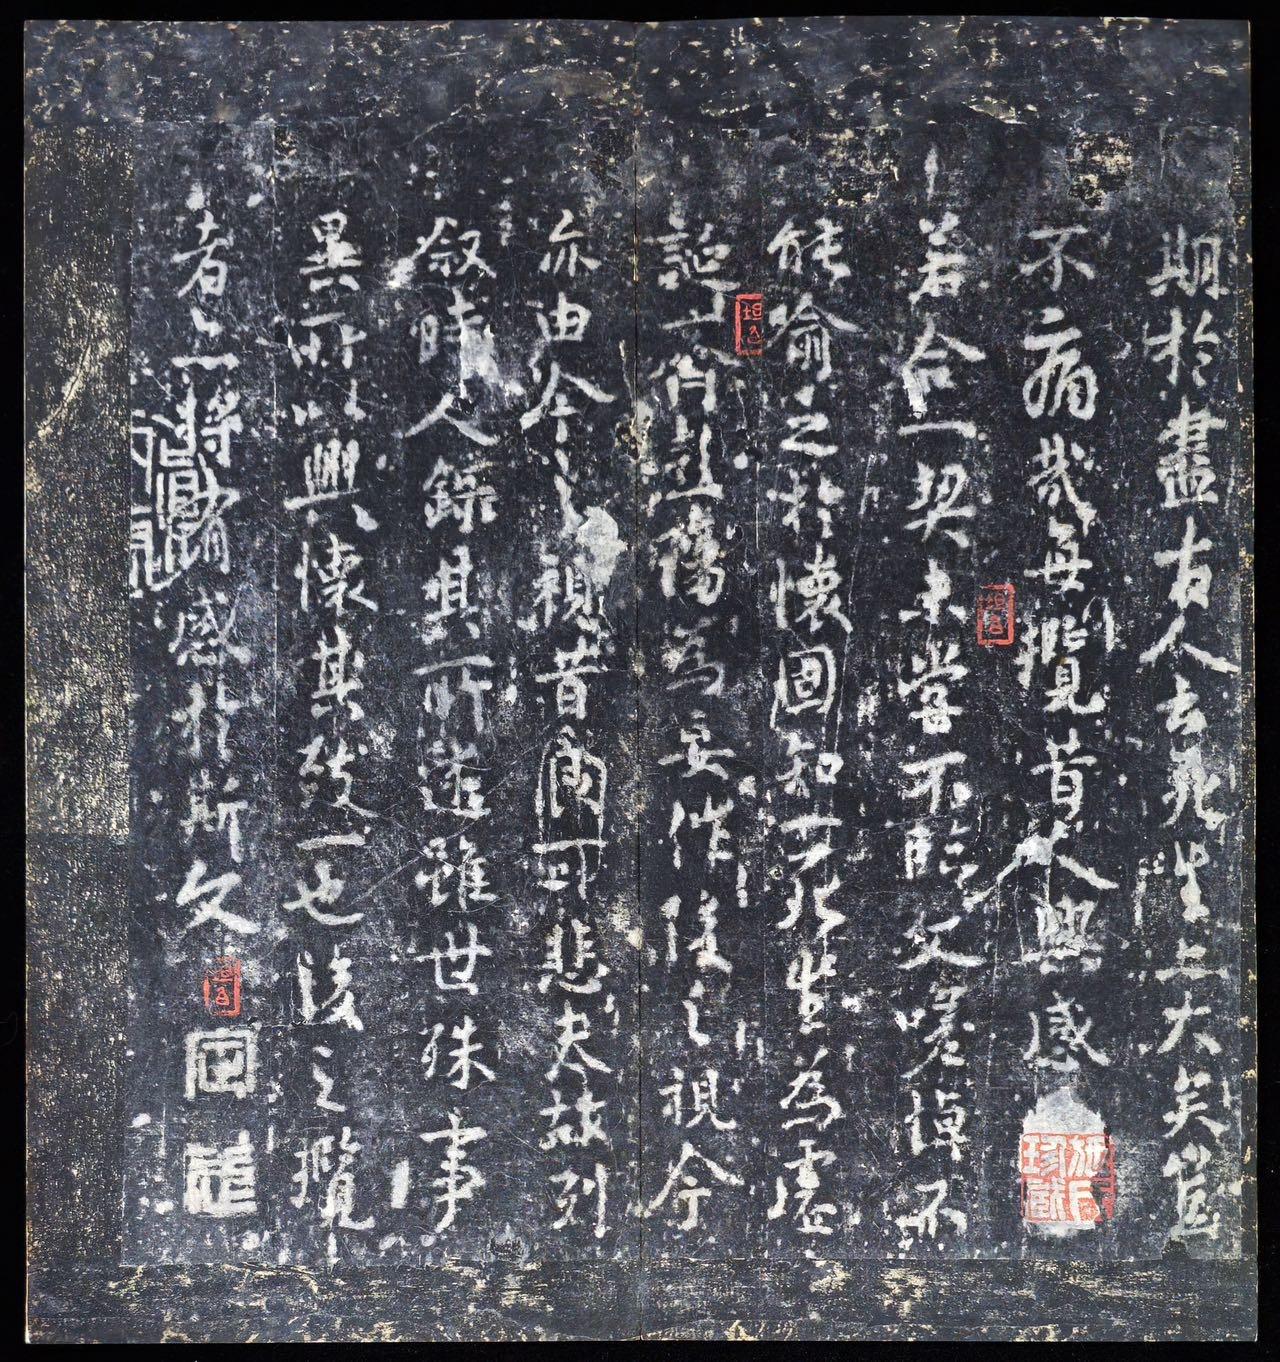 期於盡古人云死生亦大矣豈
不痛哉每攬昔人興感
若合一契未嘗不臨文嗟悼不
能喻之於懷固知一死生為虛
誕齊彭殤為妄作後之視今
亦由今之視昔良可悲夫故列
叙時人錄其所述雖世殊事
異所以興懷其致一也後之攬
者亦將有感於斯文